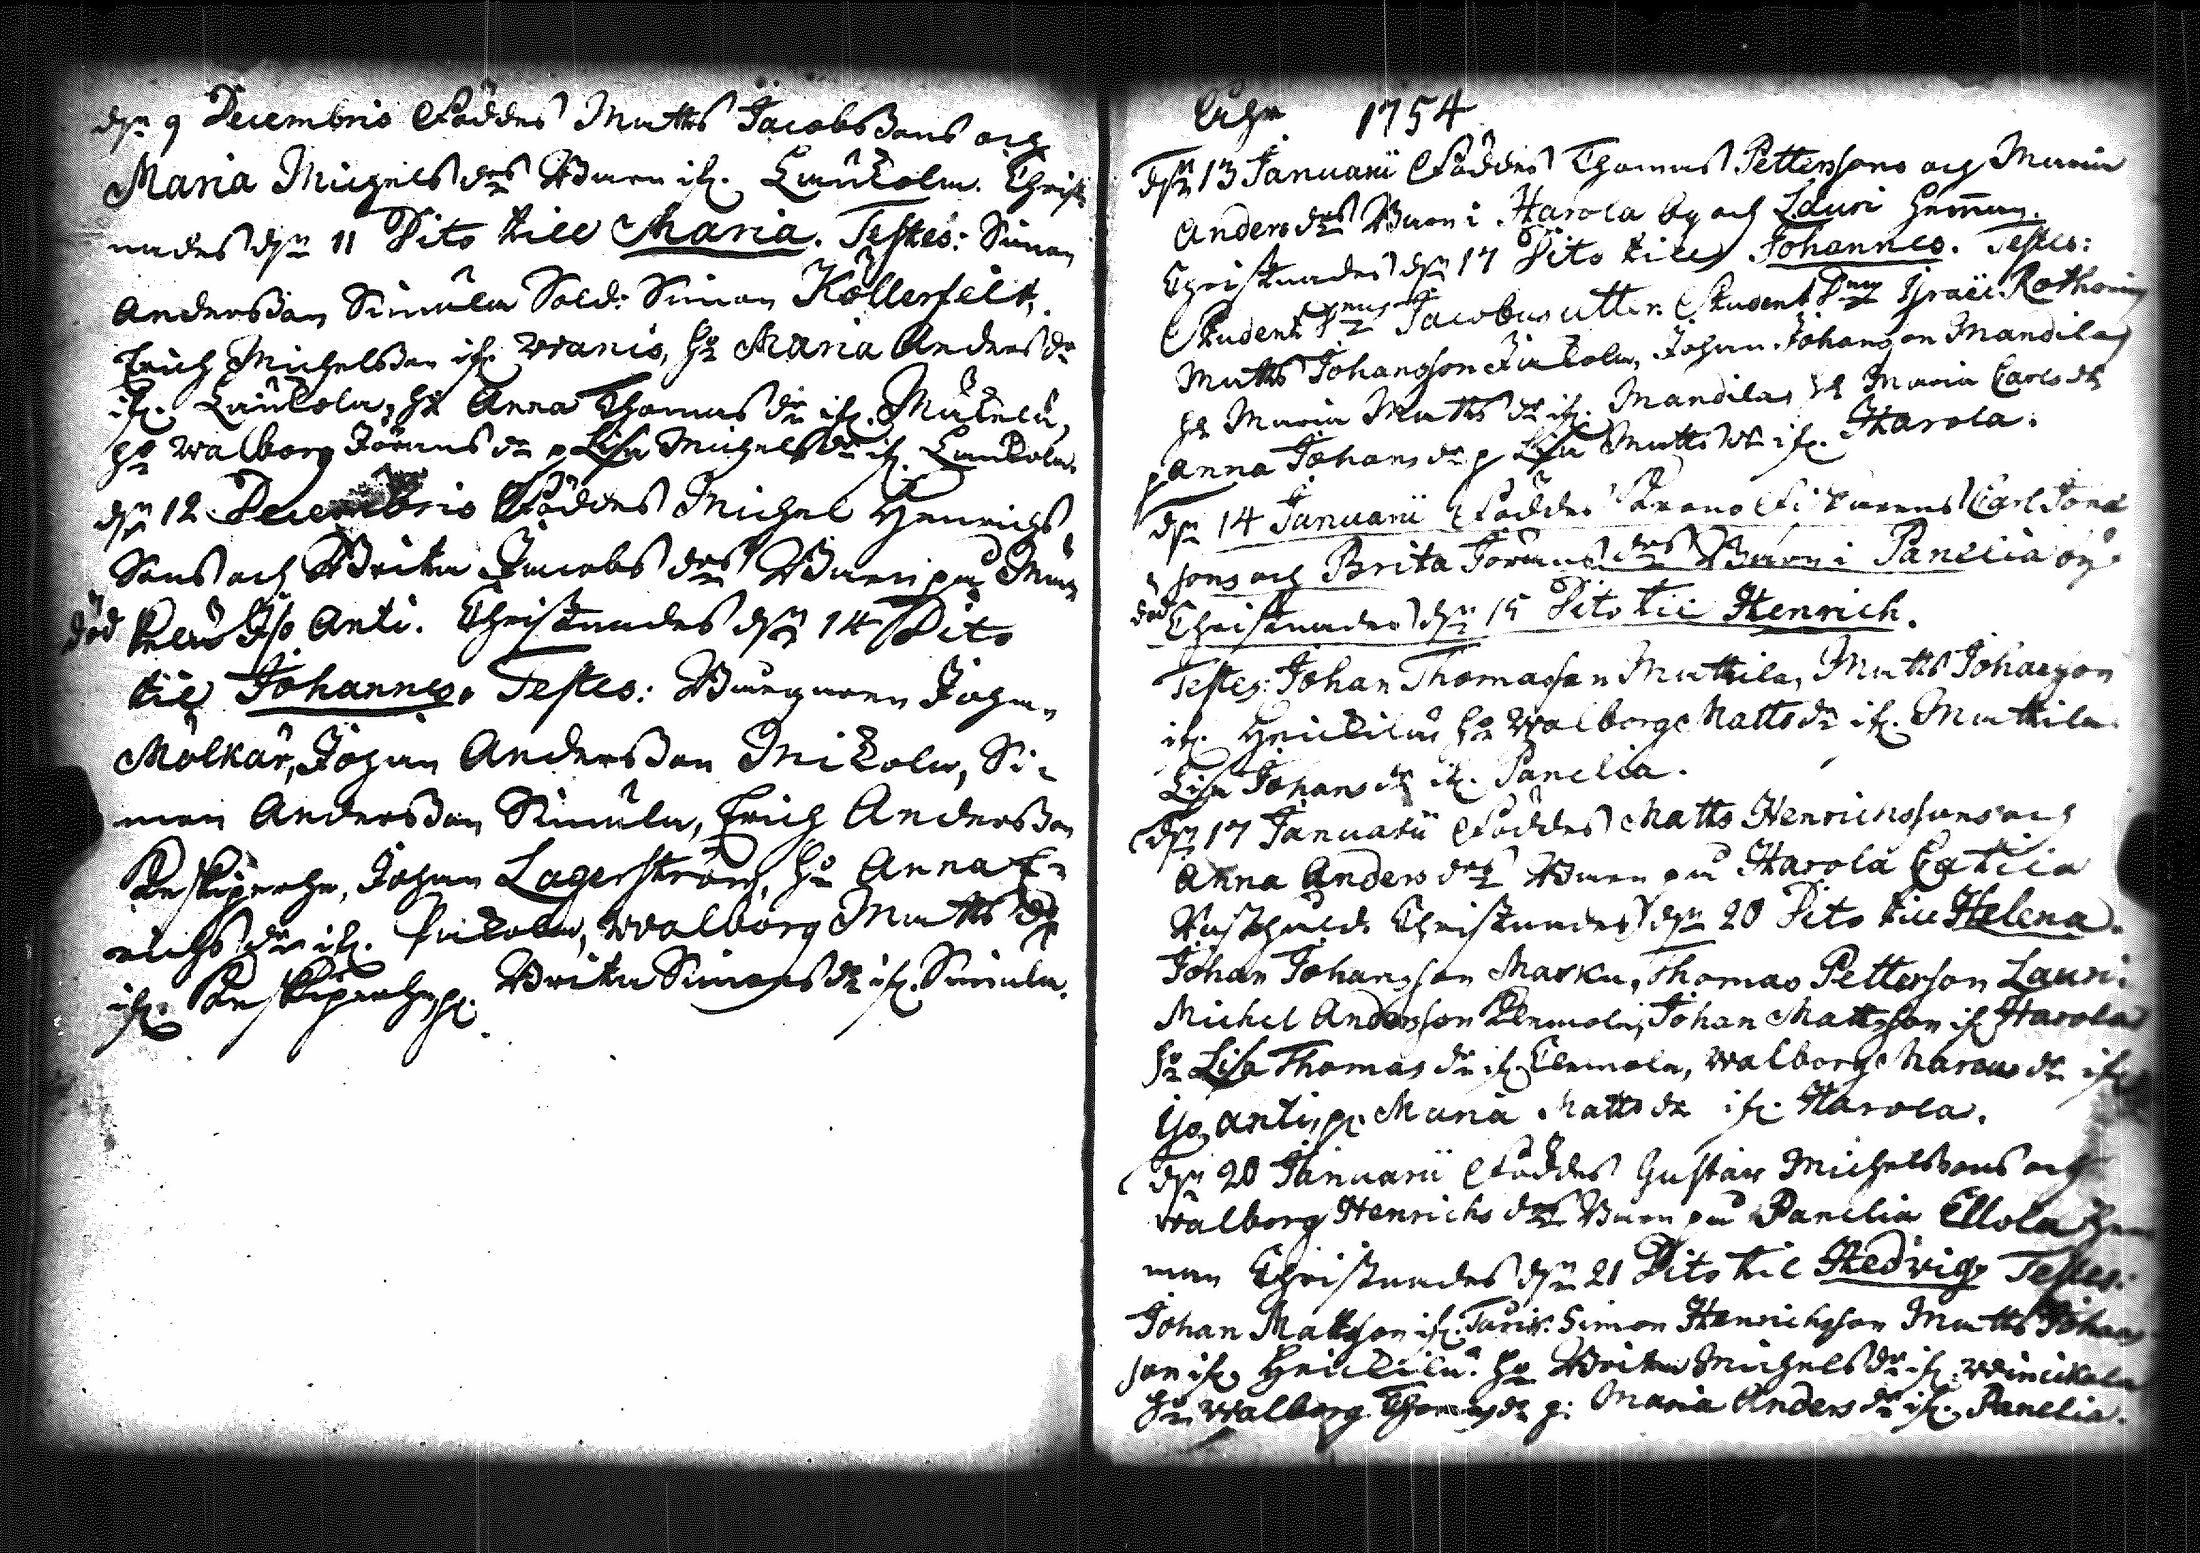 dhn 9 Decembris Föddes Matts Jacobssons och
Maria Michels drs Barn ifr. Laukola. Christ
nades dhn 11 Dito till Maria. Testes: Simon
Andersson Simula Sold: Simon Kollerfelt,
Erich Michelsson ifr. Wranis, ho Maria Anders dr
ifr. Laukola, ho Anna Thomas dr ifr.
ho Walborg Jörans dr p Lisa Michels dr ifr. Laukola.
dhn 12 Decembris Föddes Michel Henrichs
Sons och Brita Jacobs drs Barn på
död Iso Anti. Christnades dhn 14 Dito
til Johannes. Testes: Johan
Molkär, Johan Andersson Mikola, Si-
mon Andersson Simula, Erich Andersson
Keskiperhe, Johan Lagerström, ho Anna E-
richs dr ifr. Walborg Matts dr
ifr. Keskiperhe, p. Brita Simons dr ifr. Simula.
Åhr 1754
Dhn 13 Januarii Föddes Thomas Pettersons och Maria
Anders drs Barn i Harola by och Lauri Hemman.
Christnades dhn 17 Dito till Johannes. Testes:
Student Dnus Jacobus Student Dnus Israel
Matts Johansson Johan Johansson Mandila
ho Maria Matts dr ifr. Mandila, ho Maria Carls dr
p Anna Johans dr p Lisa Matts dr ifr. Harola.
dhn 14 Januarii Föddes Carl
sons och Brita Jörans drs Barn i Panelia by
död Christnades dhn 15 Dito til Henrich.
Testes: Johan Thomasson Mattila, Matts Johansson
ifr. Heickilä ho Walborg Matts dr ifr. Mattila
Lisa Johans dr ifr. Panelia.
Dhn 17 Januarii Föddes Matts Henrichssons och
Anna Anders drs Barn på Harola
Christnades dhn 20 Dito till Helena.
Johan Johansson Marku, Thomas Petterson Lauri
Michel Andersson Johan Mattsson ifr Harola
ho Lisa Thomas dr ifr Walborg Marcus dr ifr
Iso anti, p. Maria Matts dr ifr. Harola.
dhn 20 Januarii Föddes Gustav Michelssons och
Walborg Henrichs drs Barn på Panelia Ellola Hem
man Christnades dhn 21 Dito til Hedvig Testes:
Johan Mattsson ifr. Simon Henrichsson Matts Johans
son ifr. Heickilä. ho Brita Michels dr ifr.
ho Walborg Thomas dr p: Maria Anders dr ifr. Panelia.